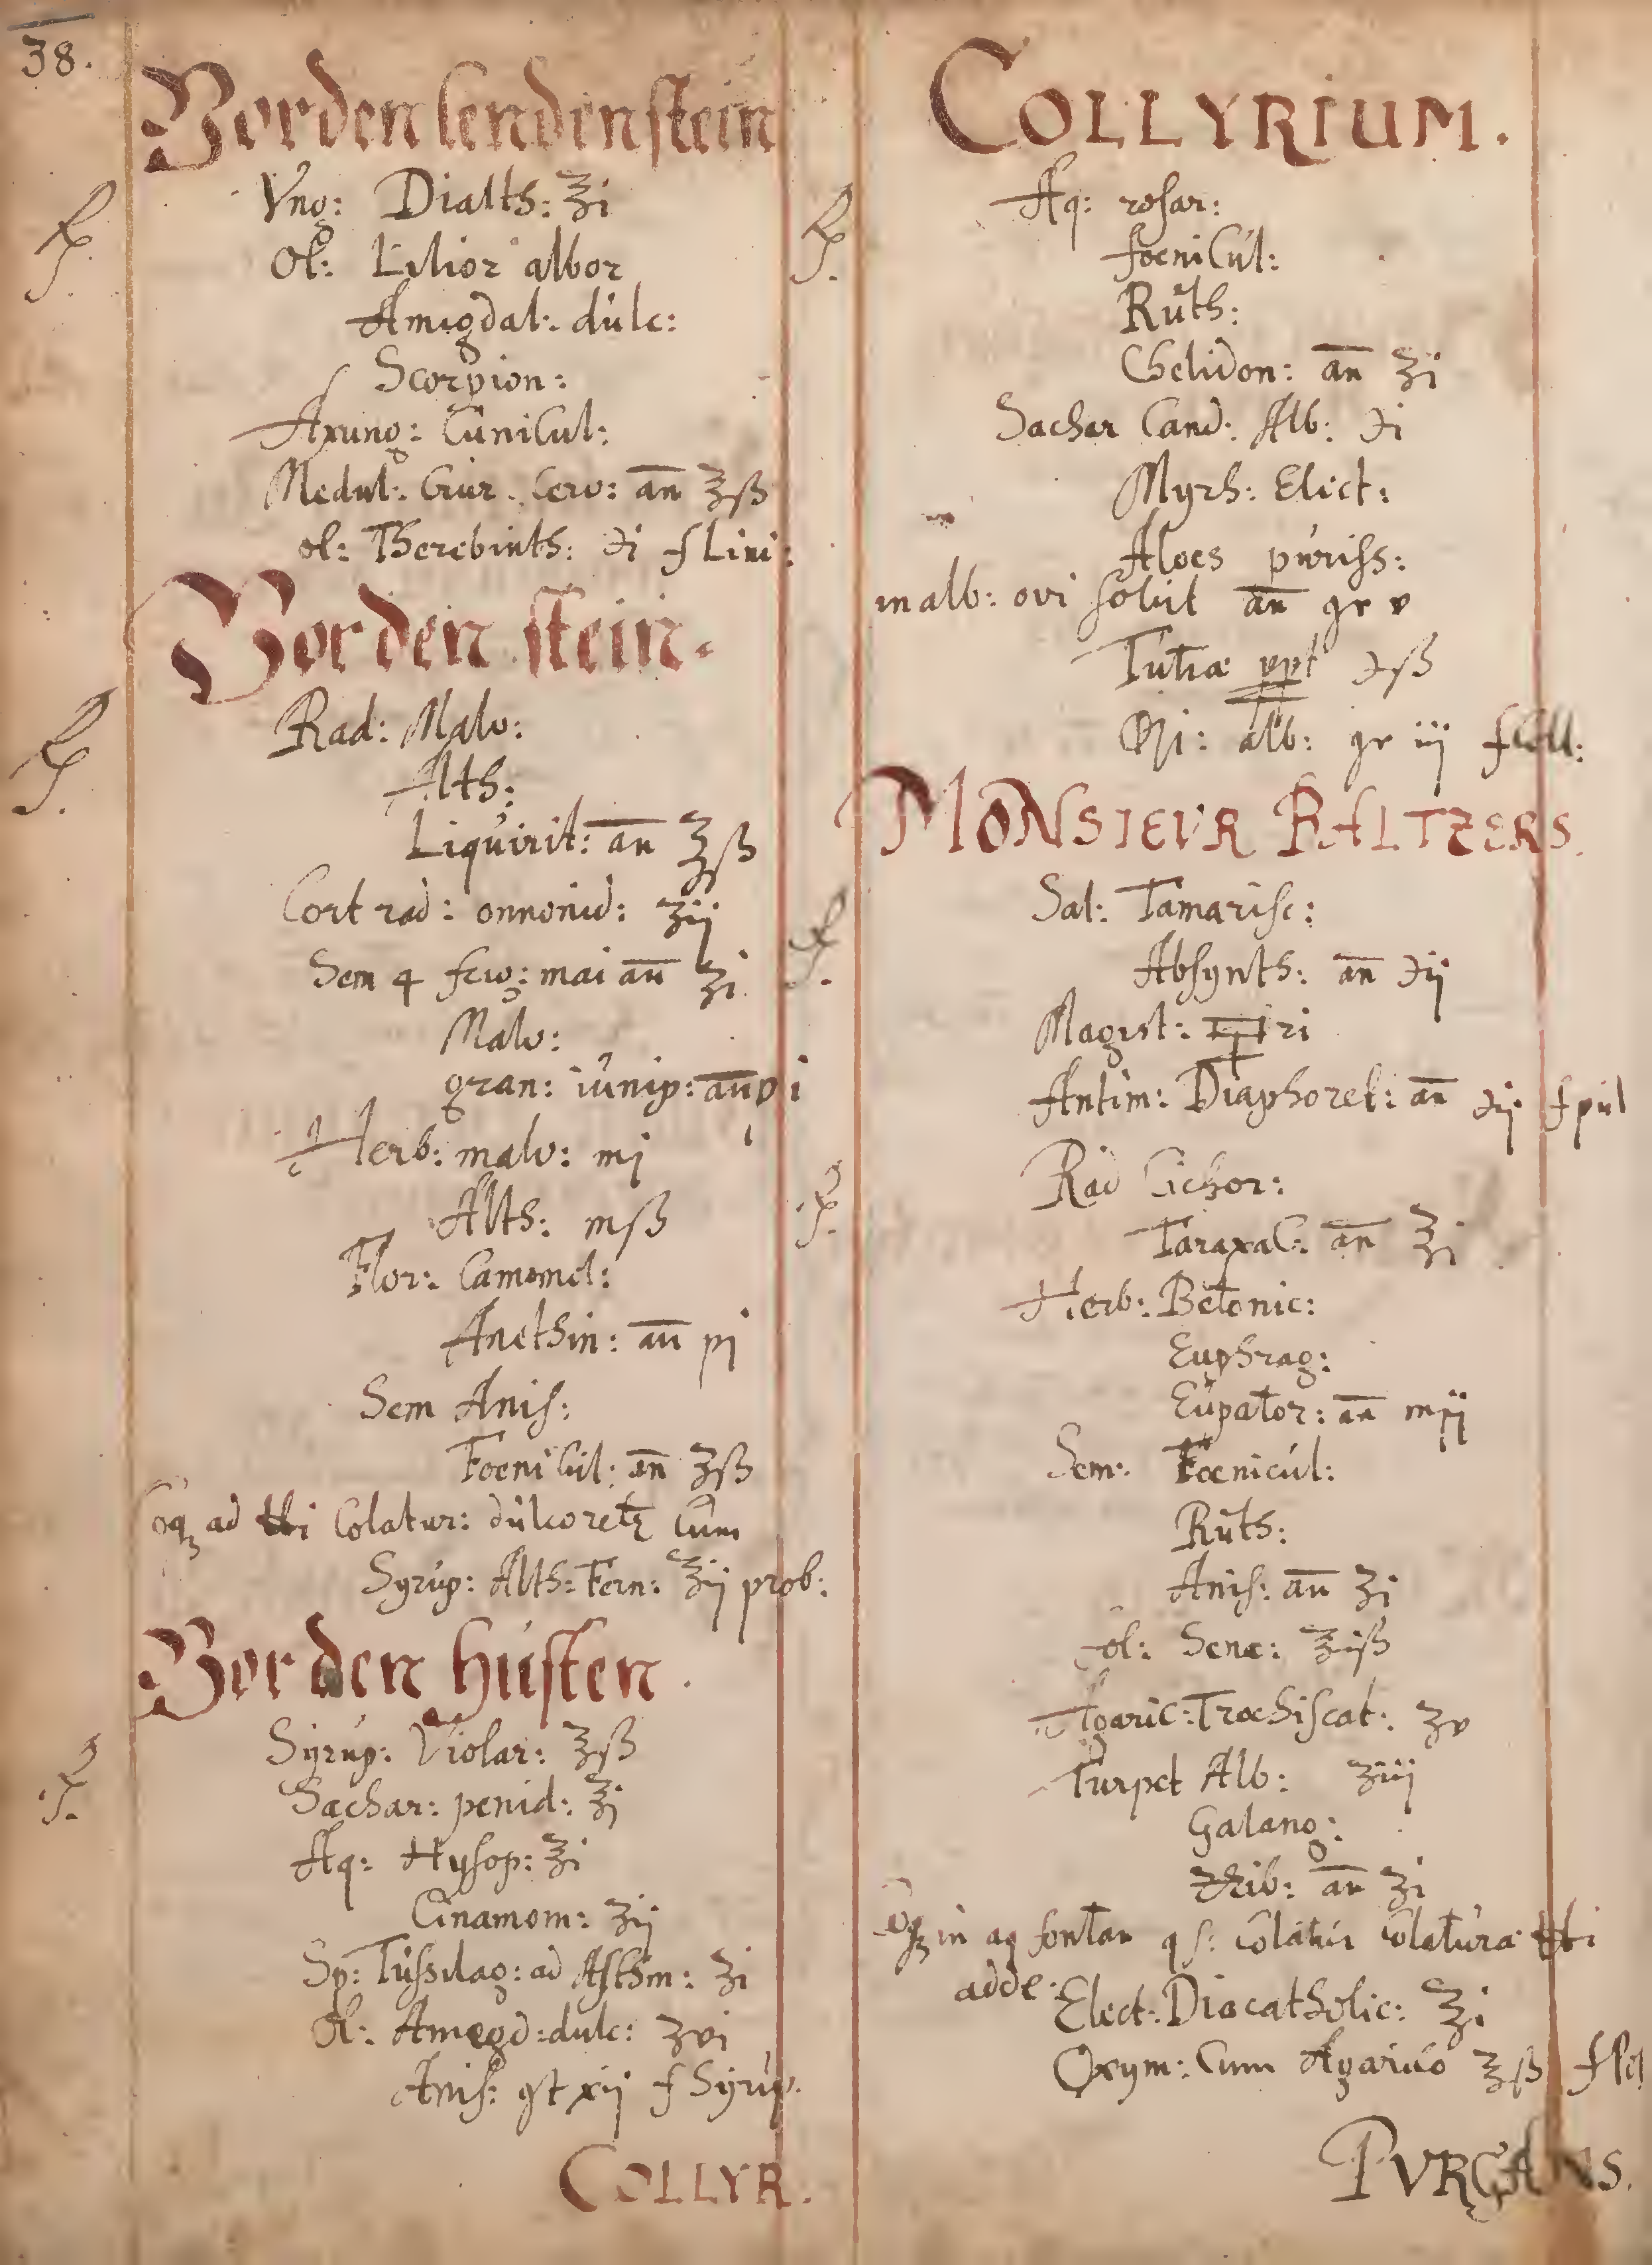 38.
Vor den lendenstein
℞ Vng: Dialth: ℥i
Ol: Lilior albor
Amigdal: dulc:
Scorpion:
Axung: Cunicul:
Medul: Crur. Cerv: an̄ ℥ß
ol: Therebinth: ℈i f Lini:
Vor den stein.
℞ Rad: Malv:
Alth:
Liquirit: an̄ ℥ß
Cort rad: onnonid: ʒij
Sem 4 frig: mai an̄ ʒi
Malv:
gran: iunip: an̄ ℈i
Herb: malv: mj
Alth: mß
Flor: Camomel:
Anethin: an̄ pj
Sem Anis:
Foenicul: an̄ ʒß
Coq ad ℔i Colatur: dulcoret Cum
Syrup: Alth: Fern: ℥ij prob:
Vor den husten.
℞ Syrup: Violar: ℥ß
Sachar: penid: ℥j
Aq: Hysop: ℥i
Cinamom: ʒij
Sp: Tussilag: ad Asthm: ʒi
Ol: Amegd: dulc: ʒvi
Anis: gt xij f Syrup.
COLLYR.
COLLYRIUM.
℞ Aq: rosar:
foenicul:
Ruth:
Chelidon: an̄ ʒi
Sachar Cand: Alb: ℈i
Myrh: Elect:
Aloes puriss:
in alb: ovi solut an̄ gr v
Tutiæ ppt ℈ß
Opi: alb: gr iij f Coll:
MONSIEVR BALTZERS.
℞ Sal: Tamarisc:
Absynth: an̄ ℈ij
Magist: ri
Antim: Diaphoret: an̄ ℈ij f pul
℞ Rad Cichor:
Taraxac: an̄ ℥i
Herb: Betonic:
Euphrag:
Eupator: an̄ mij
Sem: Foenicul:
Ruth:
Anis: an̄ ʒi
fol: Sene: ℥iß
Agaric: Trochiscat: ʒv
Turpet Alb: ʒiij
Galang:
Zib: an̄ ʒi
Coq in aq fontan qs: Colatur Colatura ℔i
adde: Elect: Diacatholic: ℥i
Oxym: Cum Agarico ℥ß f
PVRGANS.